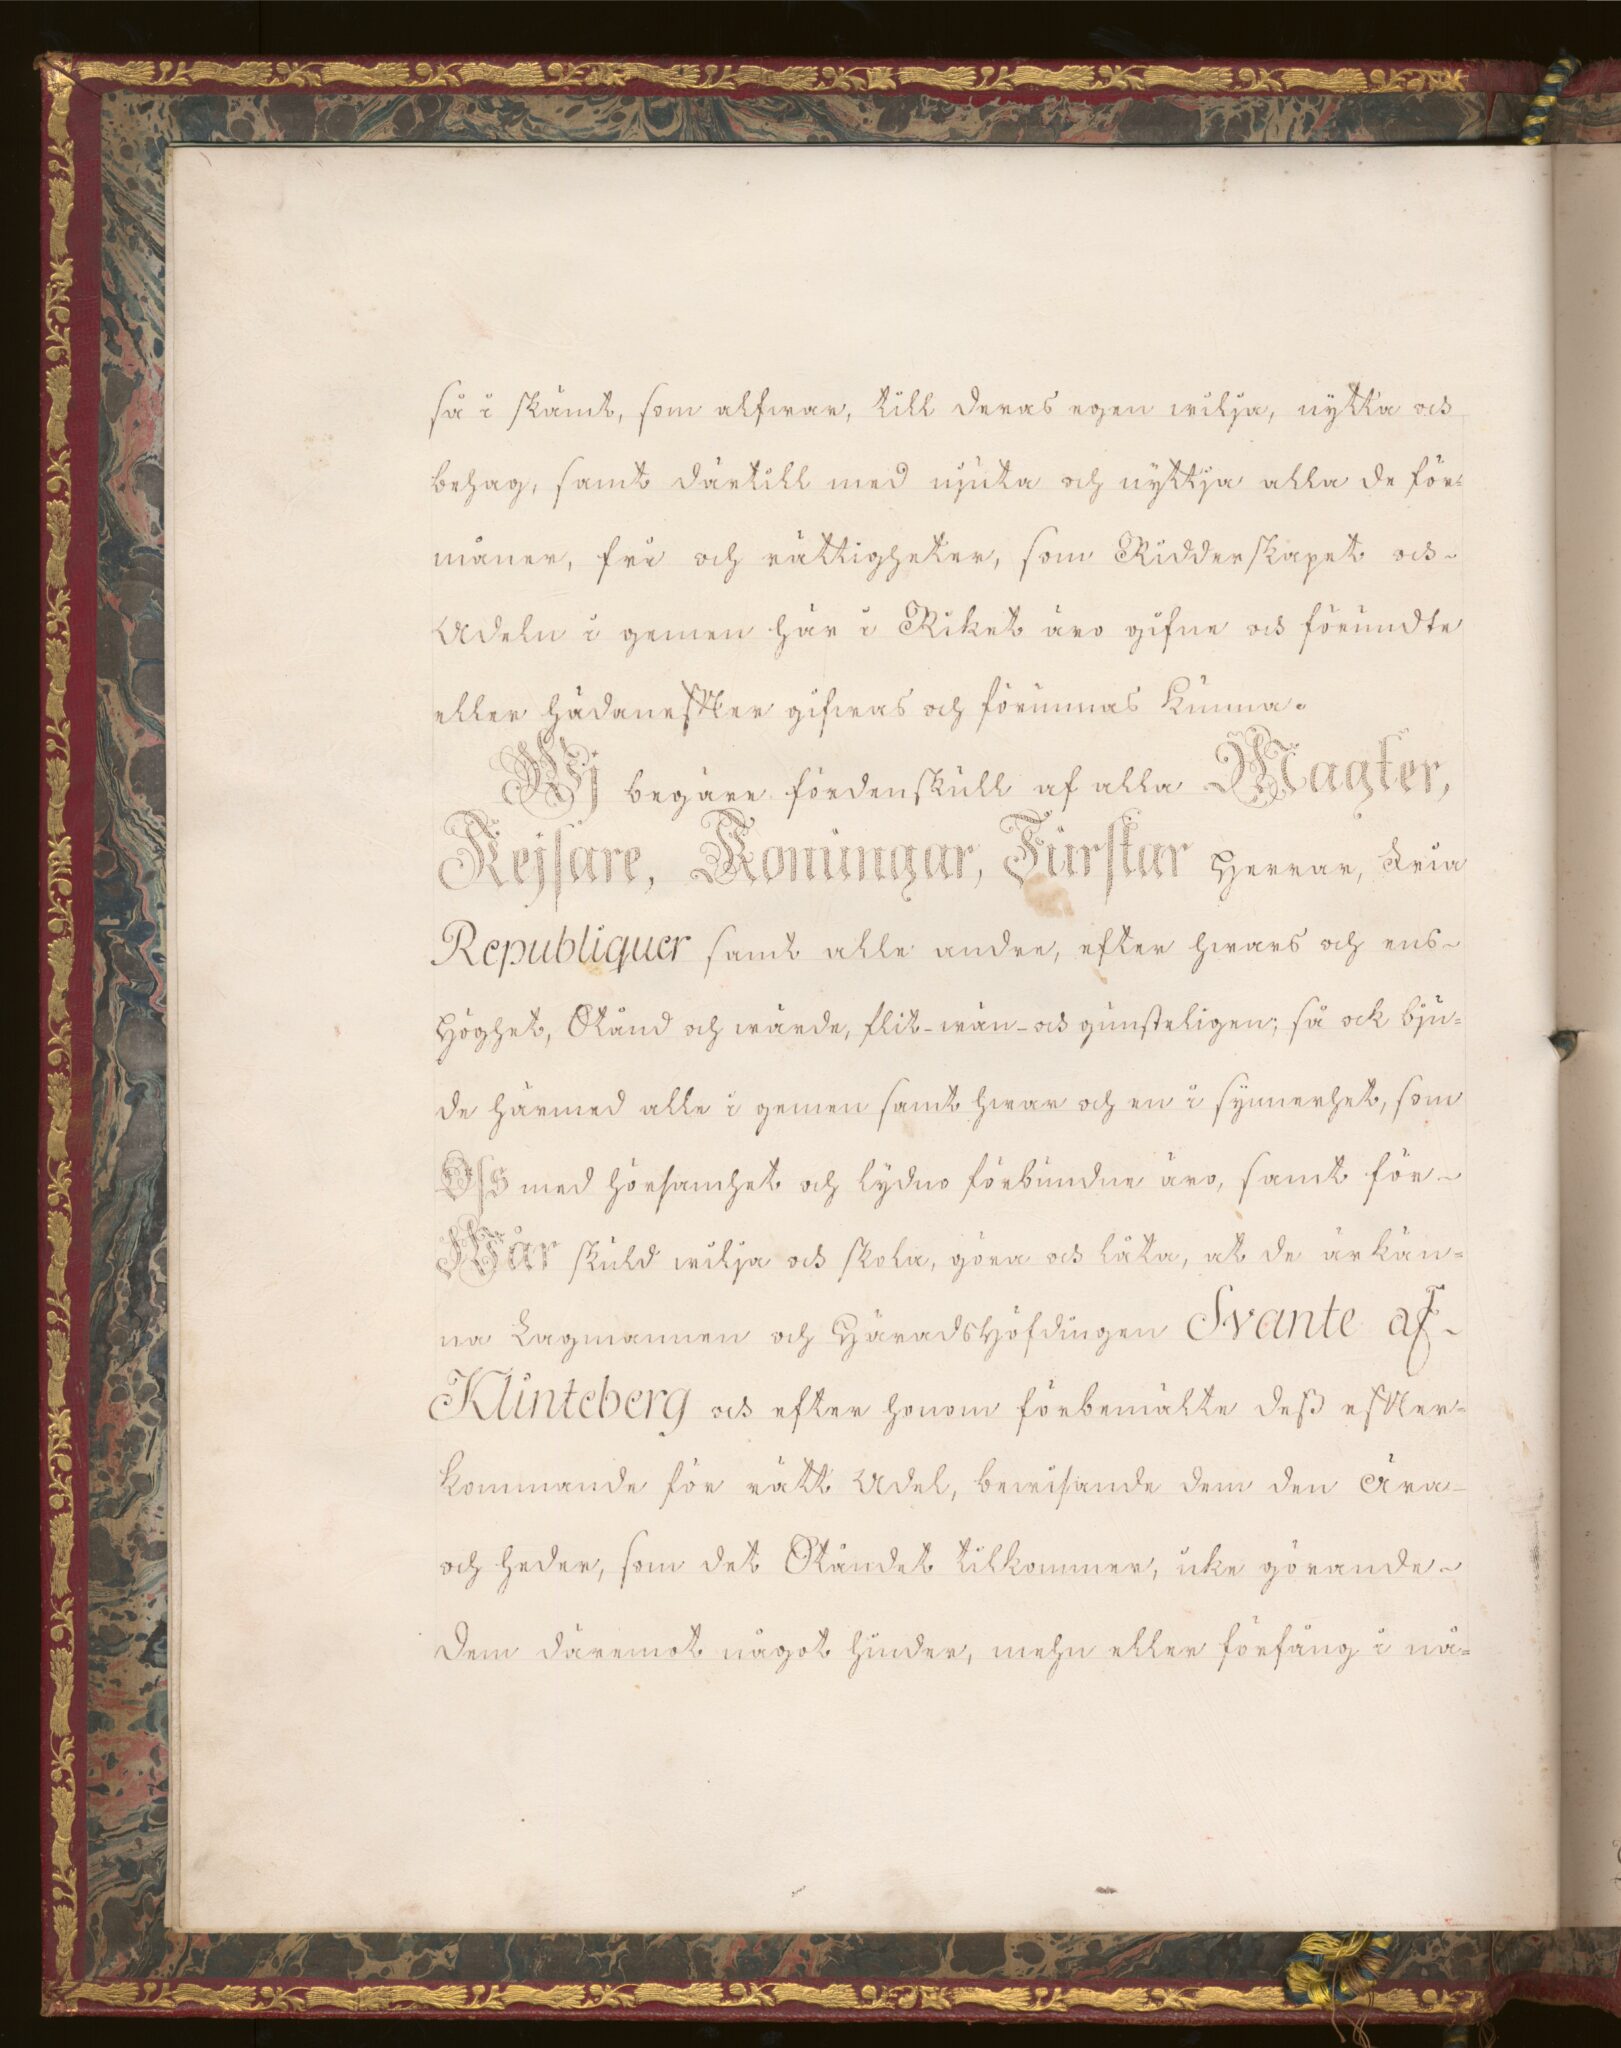 så i skämt, som alfwar, till deras egen wilja, nytta och
behag, samt därtill med njuta och nyttja alla de för-
måner, fri och rättigheter, som Ridderskapet och
Adeln i gemen här i Riket äro gifne och förundte
eller hädaneffter gifwas och förunnas kunna.
Wj begäre fördenskull af alla Magter,
Kejsare, Konungar, Furstar Herrar, Fria
Republiquer samt alle andre, efter hwars och ens
Höghet, Stånd och wärde, flit-wän-och gunsteligen; så ock bju-
de härmed alle i gemen samt hwar och en i synnerhet, som
Oss med hörsamhet och lydno förbundne äro, samt för
Wår skuld wilja och skola, göra och låta, at de ärkän-
na Lagmannen och Häradshöfdingen Svante af
Klinteberg och efter honom förbemälte deß effter-
kommande för rätt Adel, bewisande dem den Ära
och heder, som det Ståndet tilkommer, icke görande
Dem däremot något hinder, mehn eller förfång i nå-